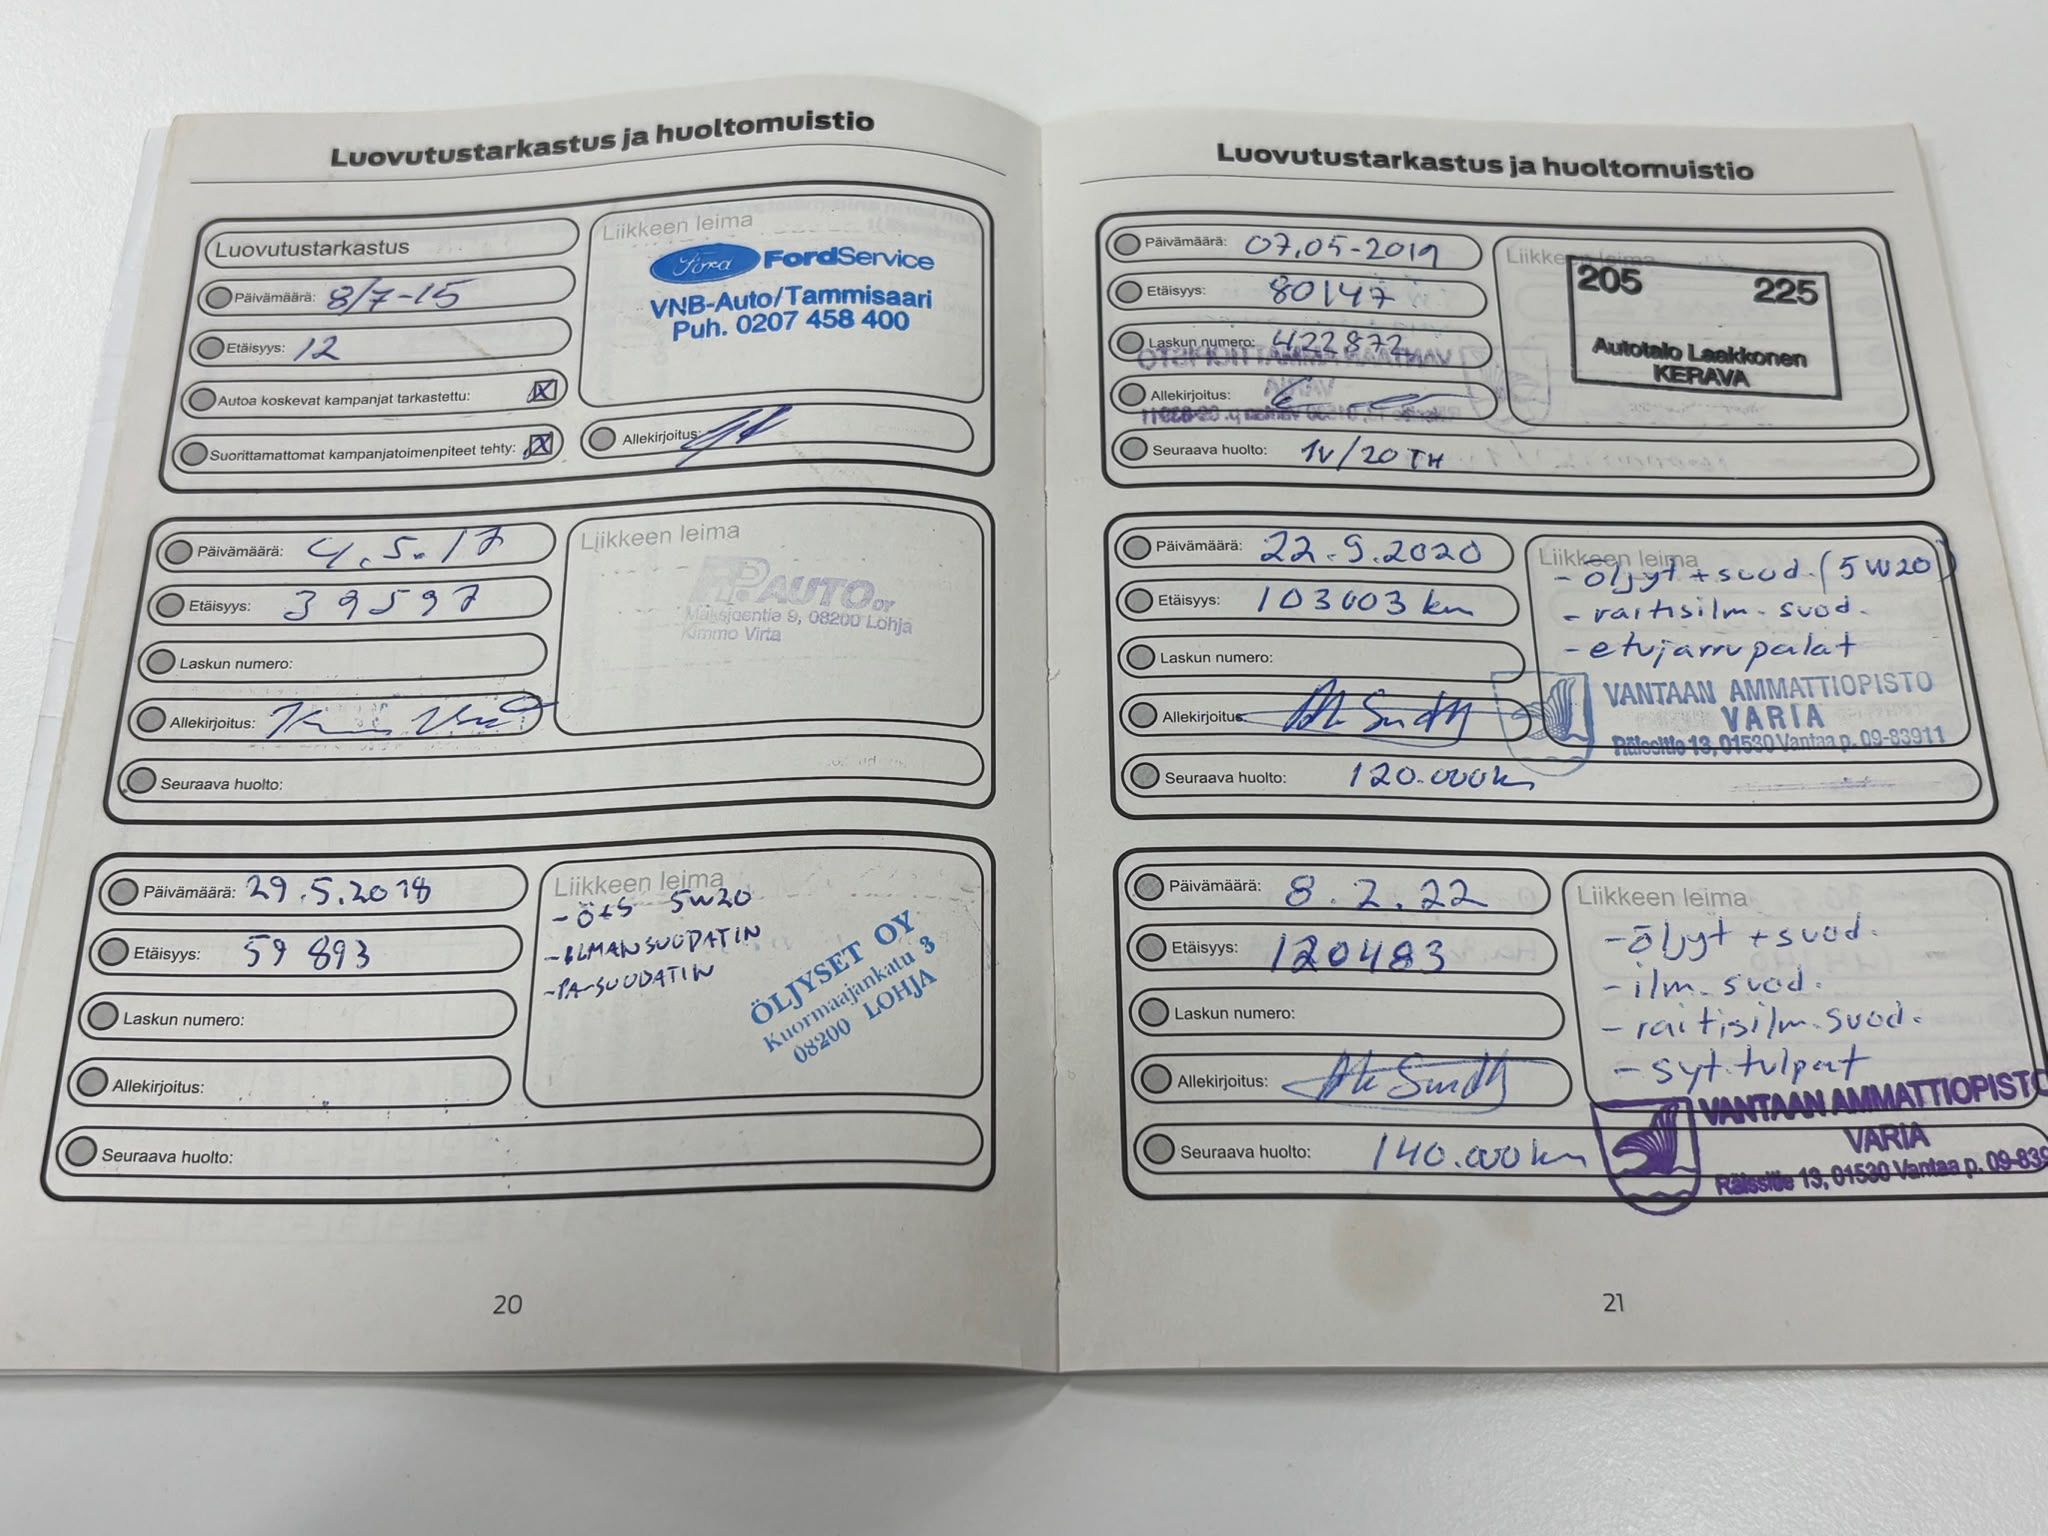 Luovutustarkastus ja huoltomuistio
Luovutustarkastus
Päivämäärä: 8/7-15
Etäisyys: 12
Autoa koskevat kampanjat tarkastettu: X
Suorittamattomat kampanjatoimenpiteet tehty: X
Liikkeen leima
Ford FordService
VNB-Auto/Tammisaari
Puh. 0207 458 400
Allekirjoitus:
Päivämäärä: 4.5.17
Etäisyys: 39597
Laskun numero:
Allekirjoitus:
Seuraava huolto:
Liikkeen leima
AUTO OY
Maksjoentie 9, 08200 Lohja
Kimmo Virta
Päivämäärä: 29.5.2018
Etäisyys: 59 893
Laskun numero:
Allekirjoitus:
Seuraava huolto:
Liikkeen leima
- Ö+S 5W20
- ILMANSUODATIN
- PA-SUODATIN
ÖLJYSET OY
Kuormaajankatu 3
08200 LOHJA
20
Luovutustarkastus ja huoltomuistio
Päivämäärä: 07.05-2019
Etäisyys: 80147
Laskun numero: 422872
Allekirjoitus:
Seuraava huolto: 1v/20 TH
Liikkeen leima
205 225
Autotalo Laakkonen
KERAVA
Päivämäärä: 22.9.2020
Etäisyys: 103003 km
Laskun numero:
Allekirjoitus:
Seuraava huolto: 120.000km
Liikkeen leima
- öljyt + suod. (5W20)
- raitisilm. suod.
- etujarrupalat
VANTAAN AMMATTIOPISTO
VARIA
Rälssitie 13, 01530 Vantaa p. 09-83911
Päivämäärä: 8.2.22
Etäisyys: 120483
Laskun numero:
Allekirjoitus:
Seuraava huolto: 140.000km
Liikkeen leima
- öljyt + suod.
- ilm. suod.
- raitisilm. suod.
- syt. tulpat
VANTAAN AMMATTIOPISTO
VARIA
Rälssitie 13, 01530 Vantaa p. 09-839
21